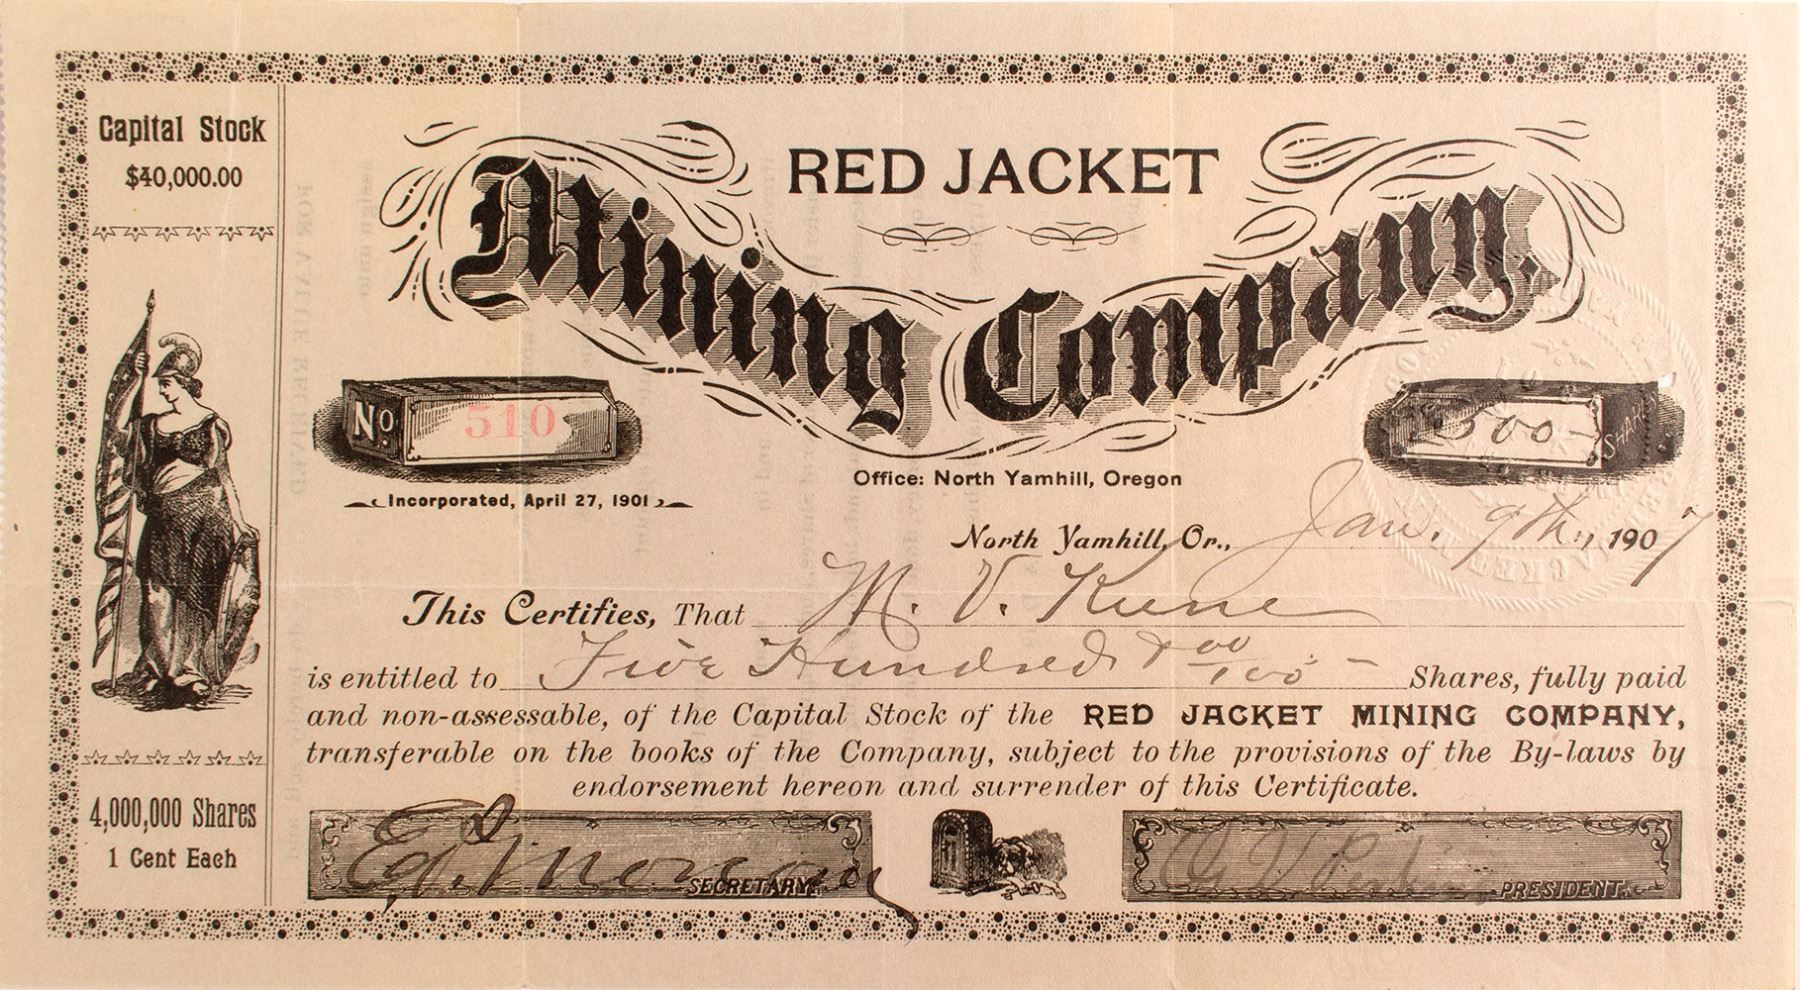 Capital Stock
$40,000.00
4,000,000 Shares
1 Cent Each
RED JACKET
Mining Company.
No. 510
500 SHARES
Incorporated, April 27, 1901
Office: North Yamhill, Oregon
North Yamhill, Or., Jan. 9th, 1907
This Certifies, That M. V. Kune
is entitled to Five Hundred & 00/100 - Shares, fully paid
and non-assessable, of the Capital Stock of the RED JACKET MINING COMPANY,
transferable on the books of the Company, subject to the provisions of the By-laws by
endorsement hereon and surrender of this Certificate.
SECRETARY.
PRESIDENT.
FOR VALUE RECEIVED